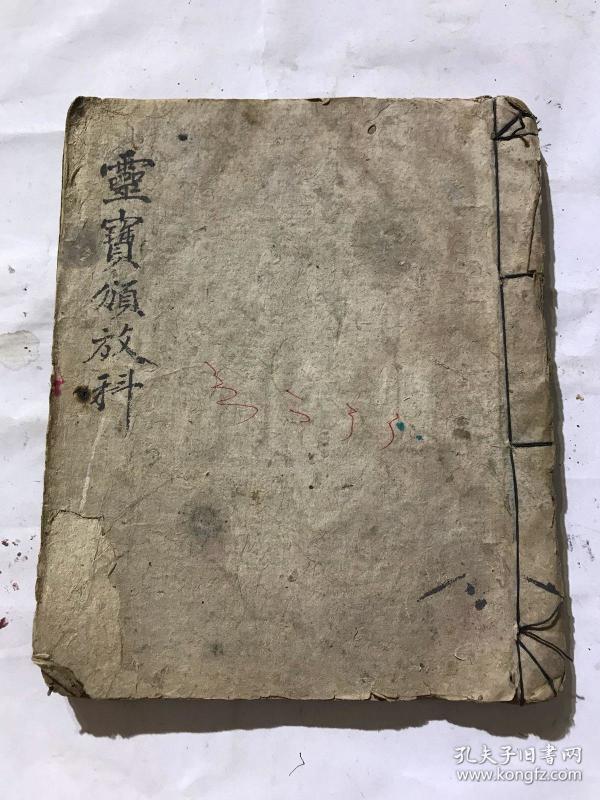 靈寶頒放科
孔夫子旧書网
www.kongfz.com